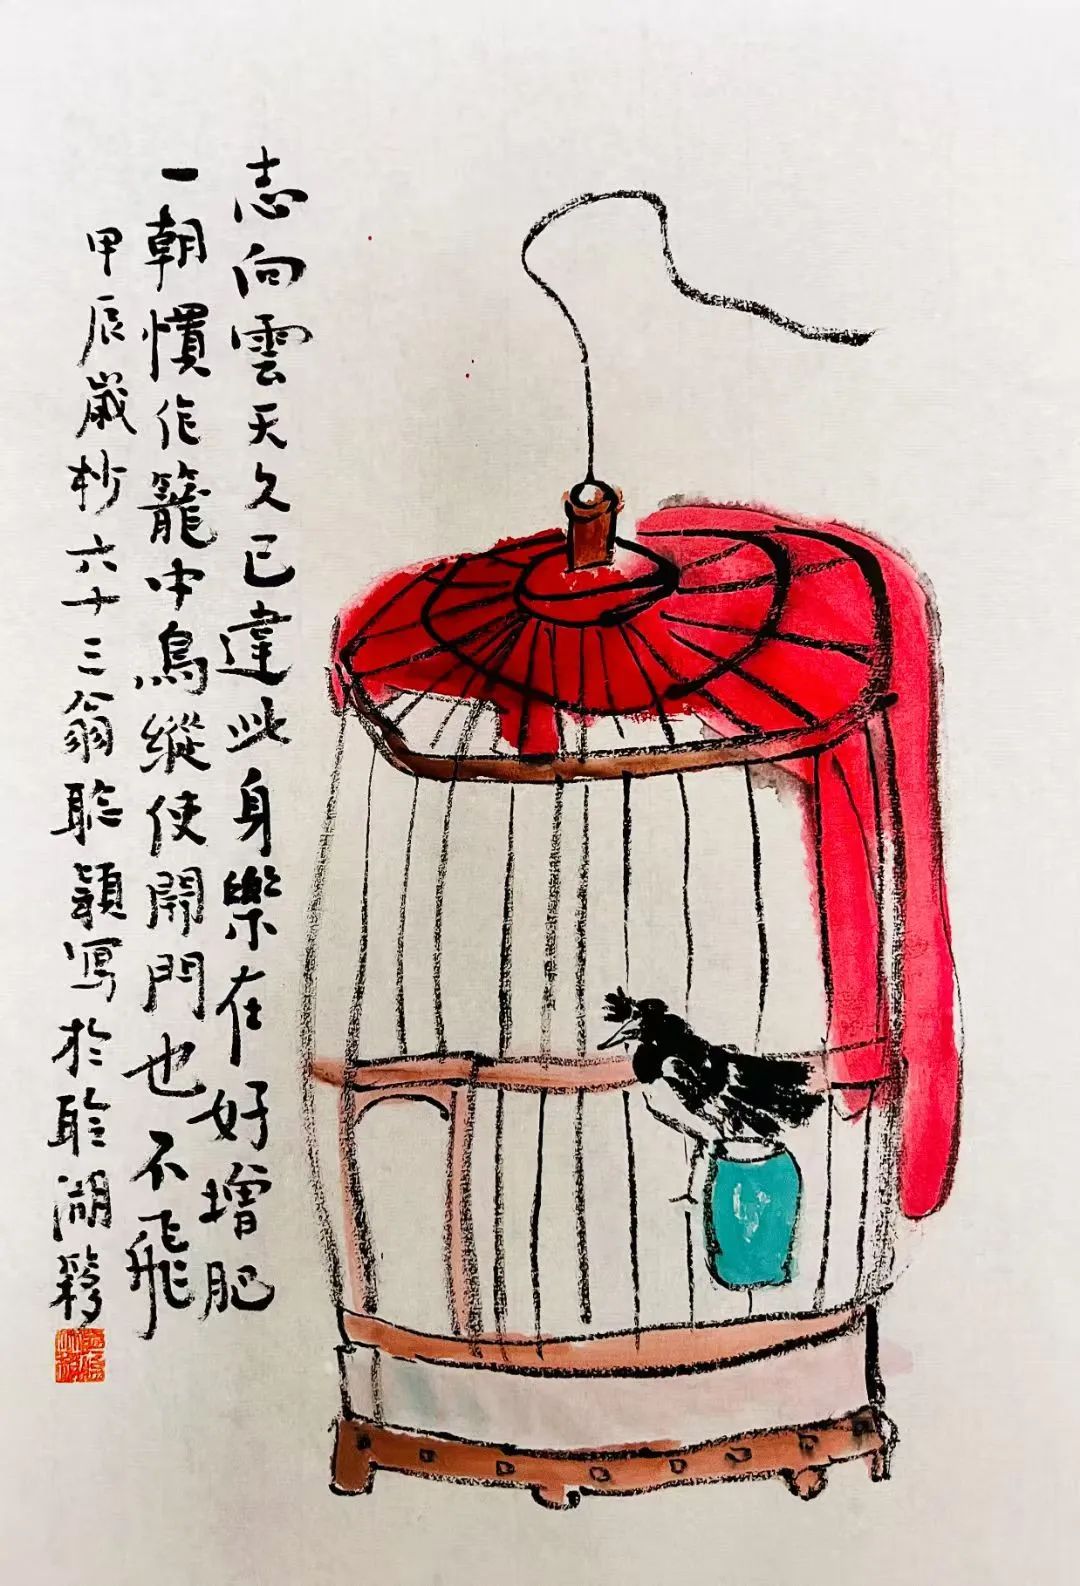 志向雲天久已違此身樂在好增肥
一朝慣作籠中鳥縱使開門也不飛
甲辰歲杪六十三翁聆穎寫於聆湖